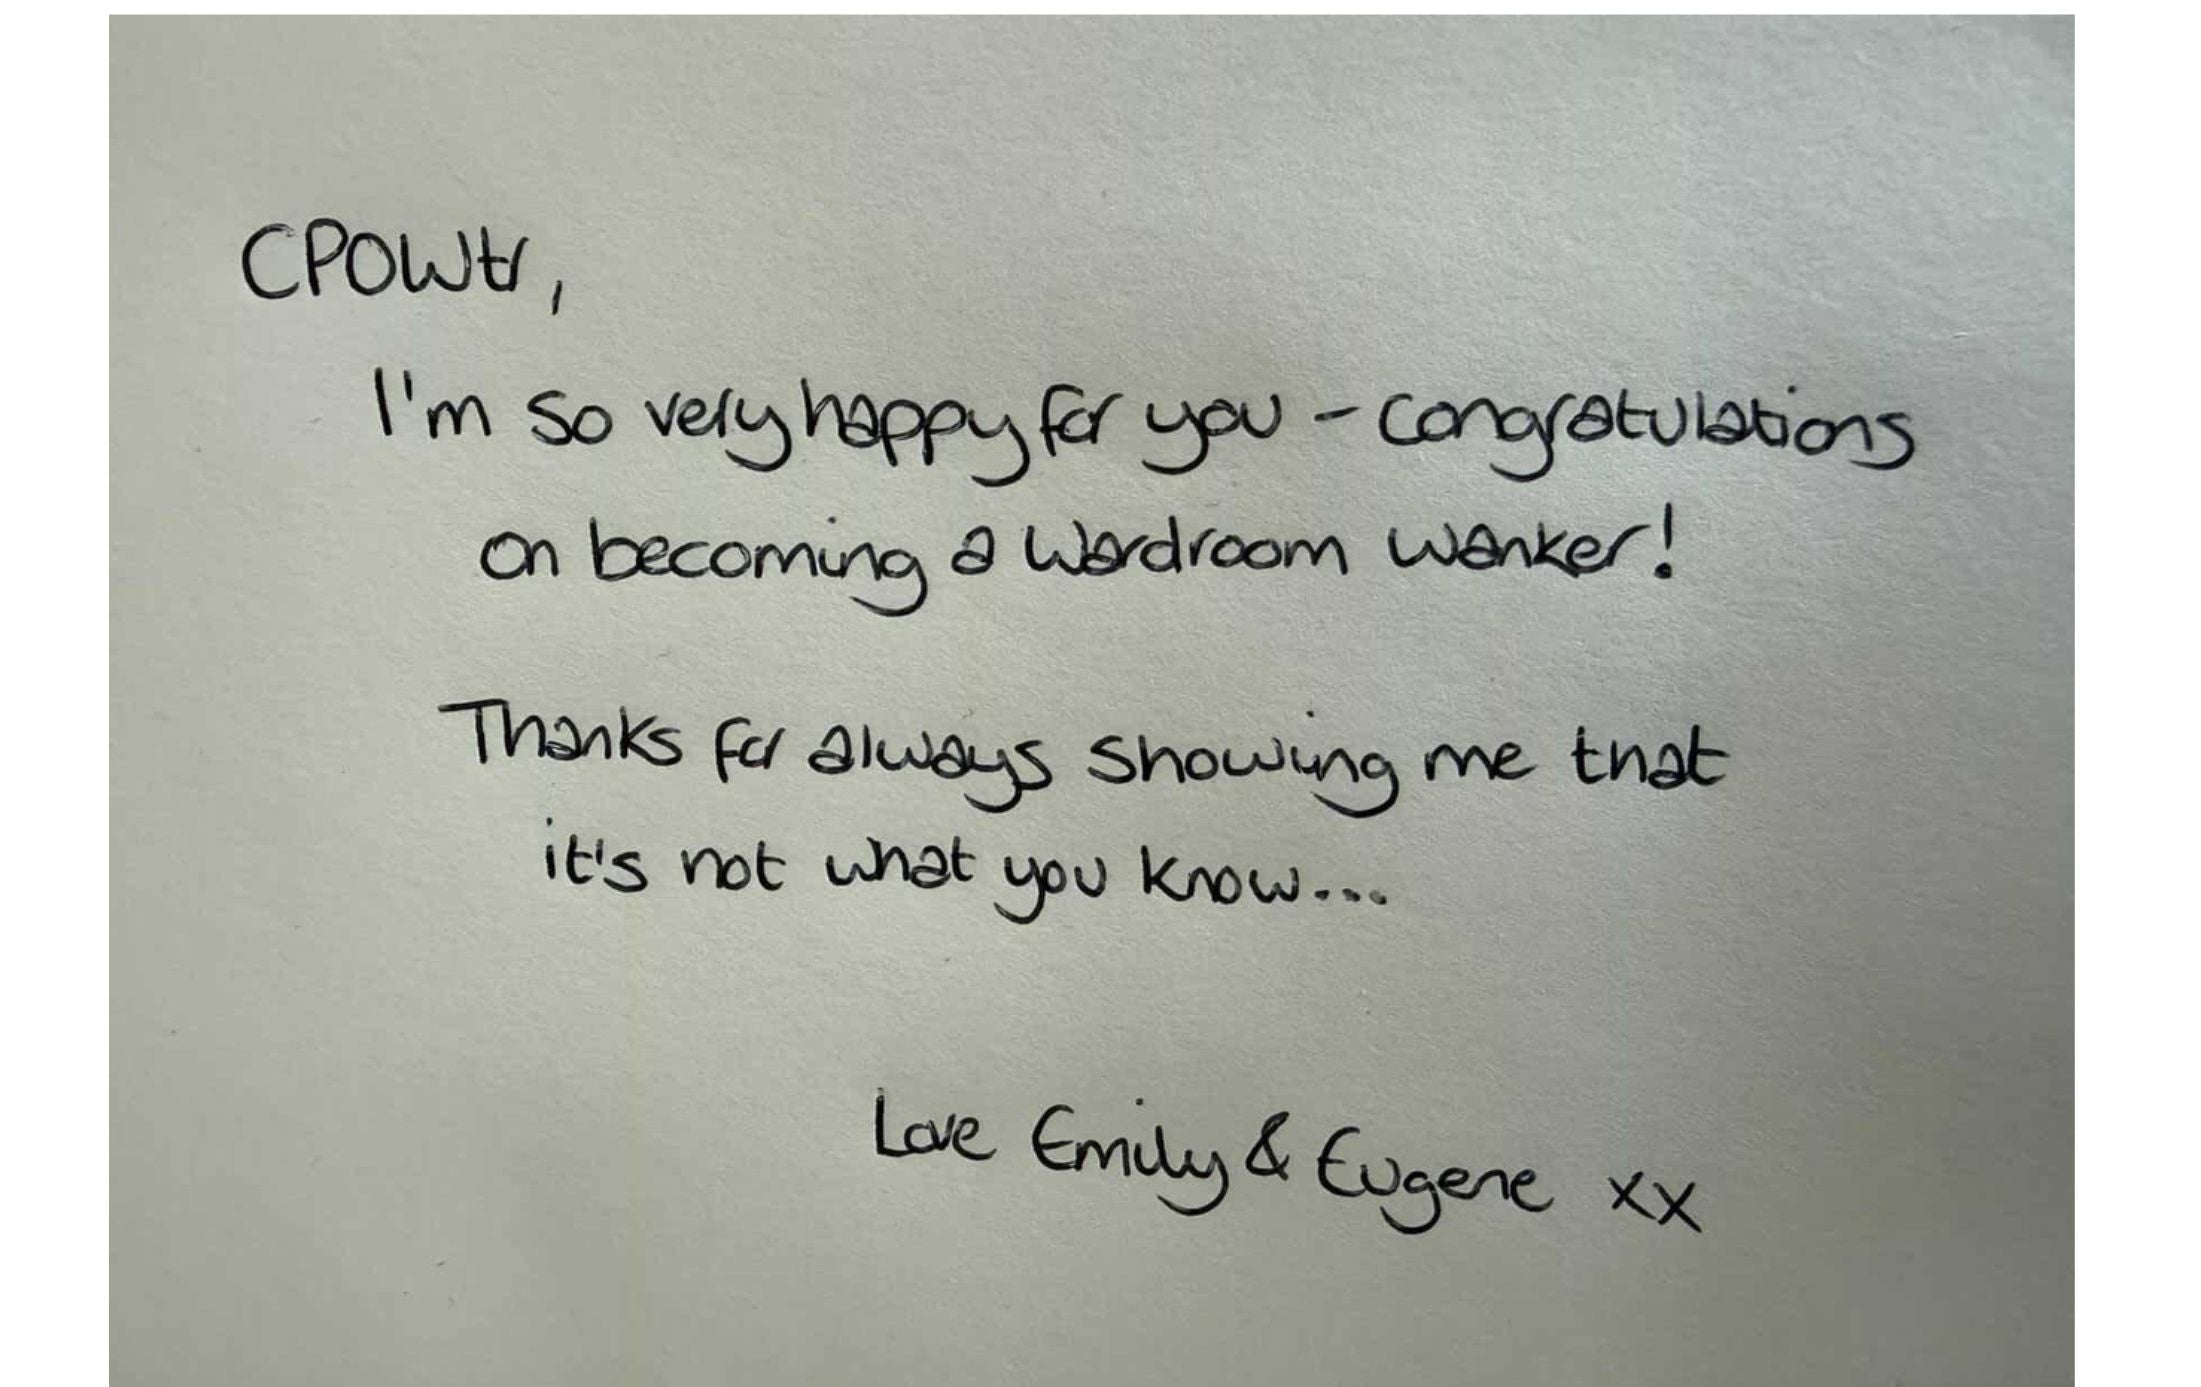 CPOWtr,
I'm so very happy for you - congratulations
on becoming a Wardroom Wanker!
Thanks for always showing me that
it's not what you know...
Love Emily & Eugene xx